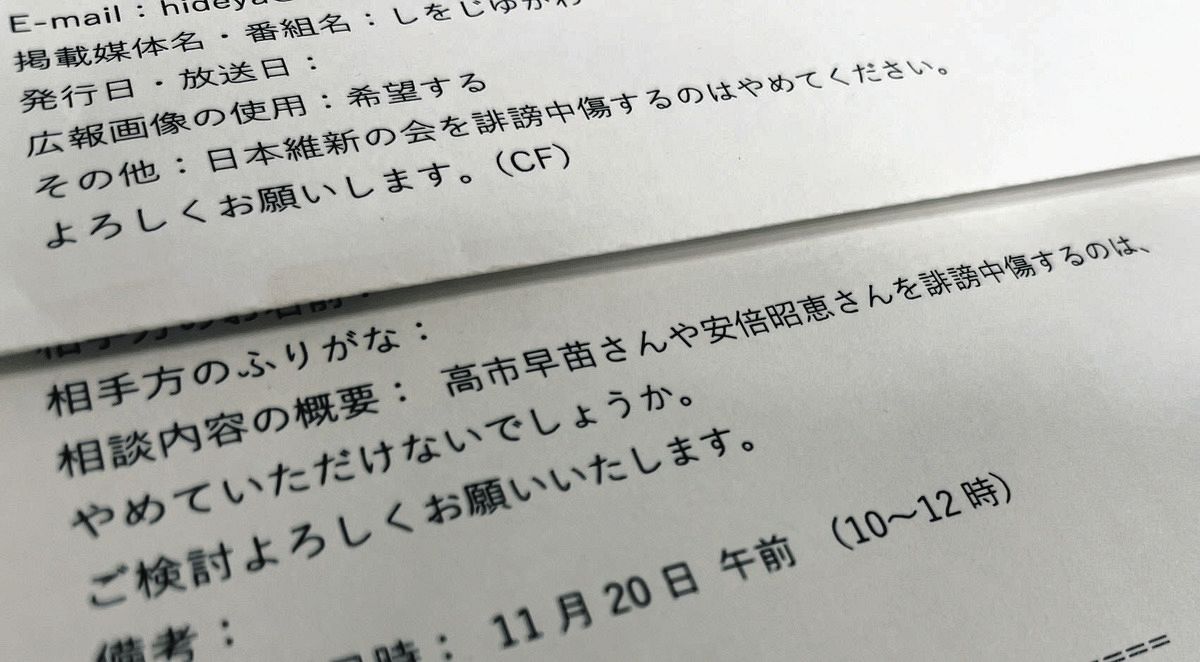 E-mail : hideya
掲載媒体名・番組名：しをじゆがわ
発行日・放送日：
広報画像の使用：希望する
その他：日本維新の会を誹謗中傷するのはやめてください。
よろしくお願いします。（CF）
相手方のお名前：
相手方のふりがな：
相談内容の概要： 高市早苗さんや安倍昭恵さんを誹謗中傷するのは、
やめていただけないでしょうか。
ご検討よろしくお願いいたします。
備考：
時： 11月20日 午前 （10〜12時）
====